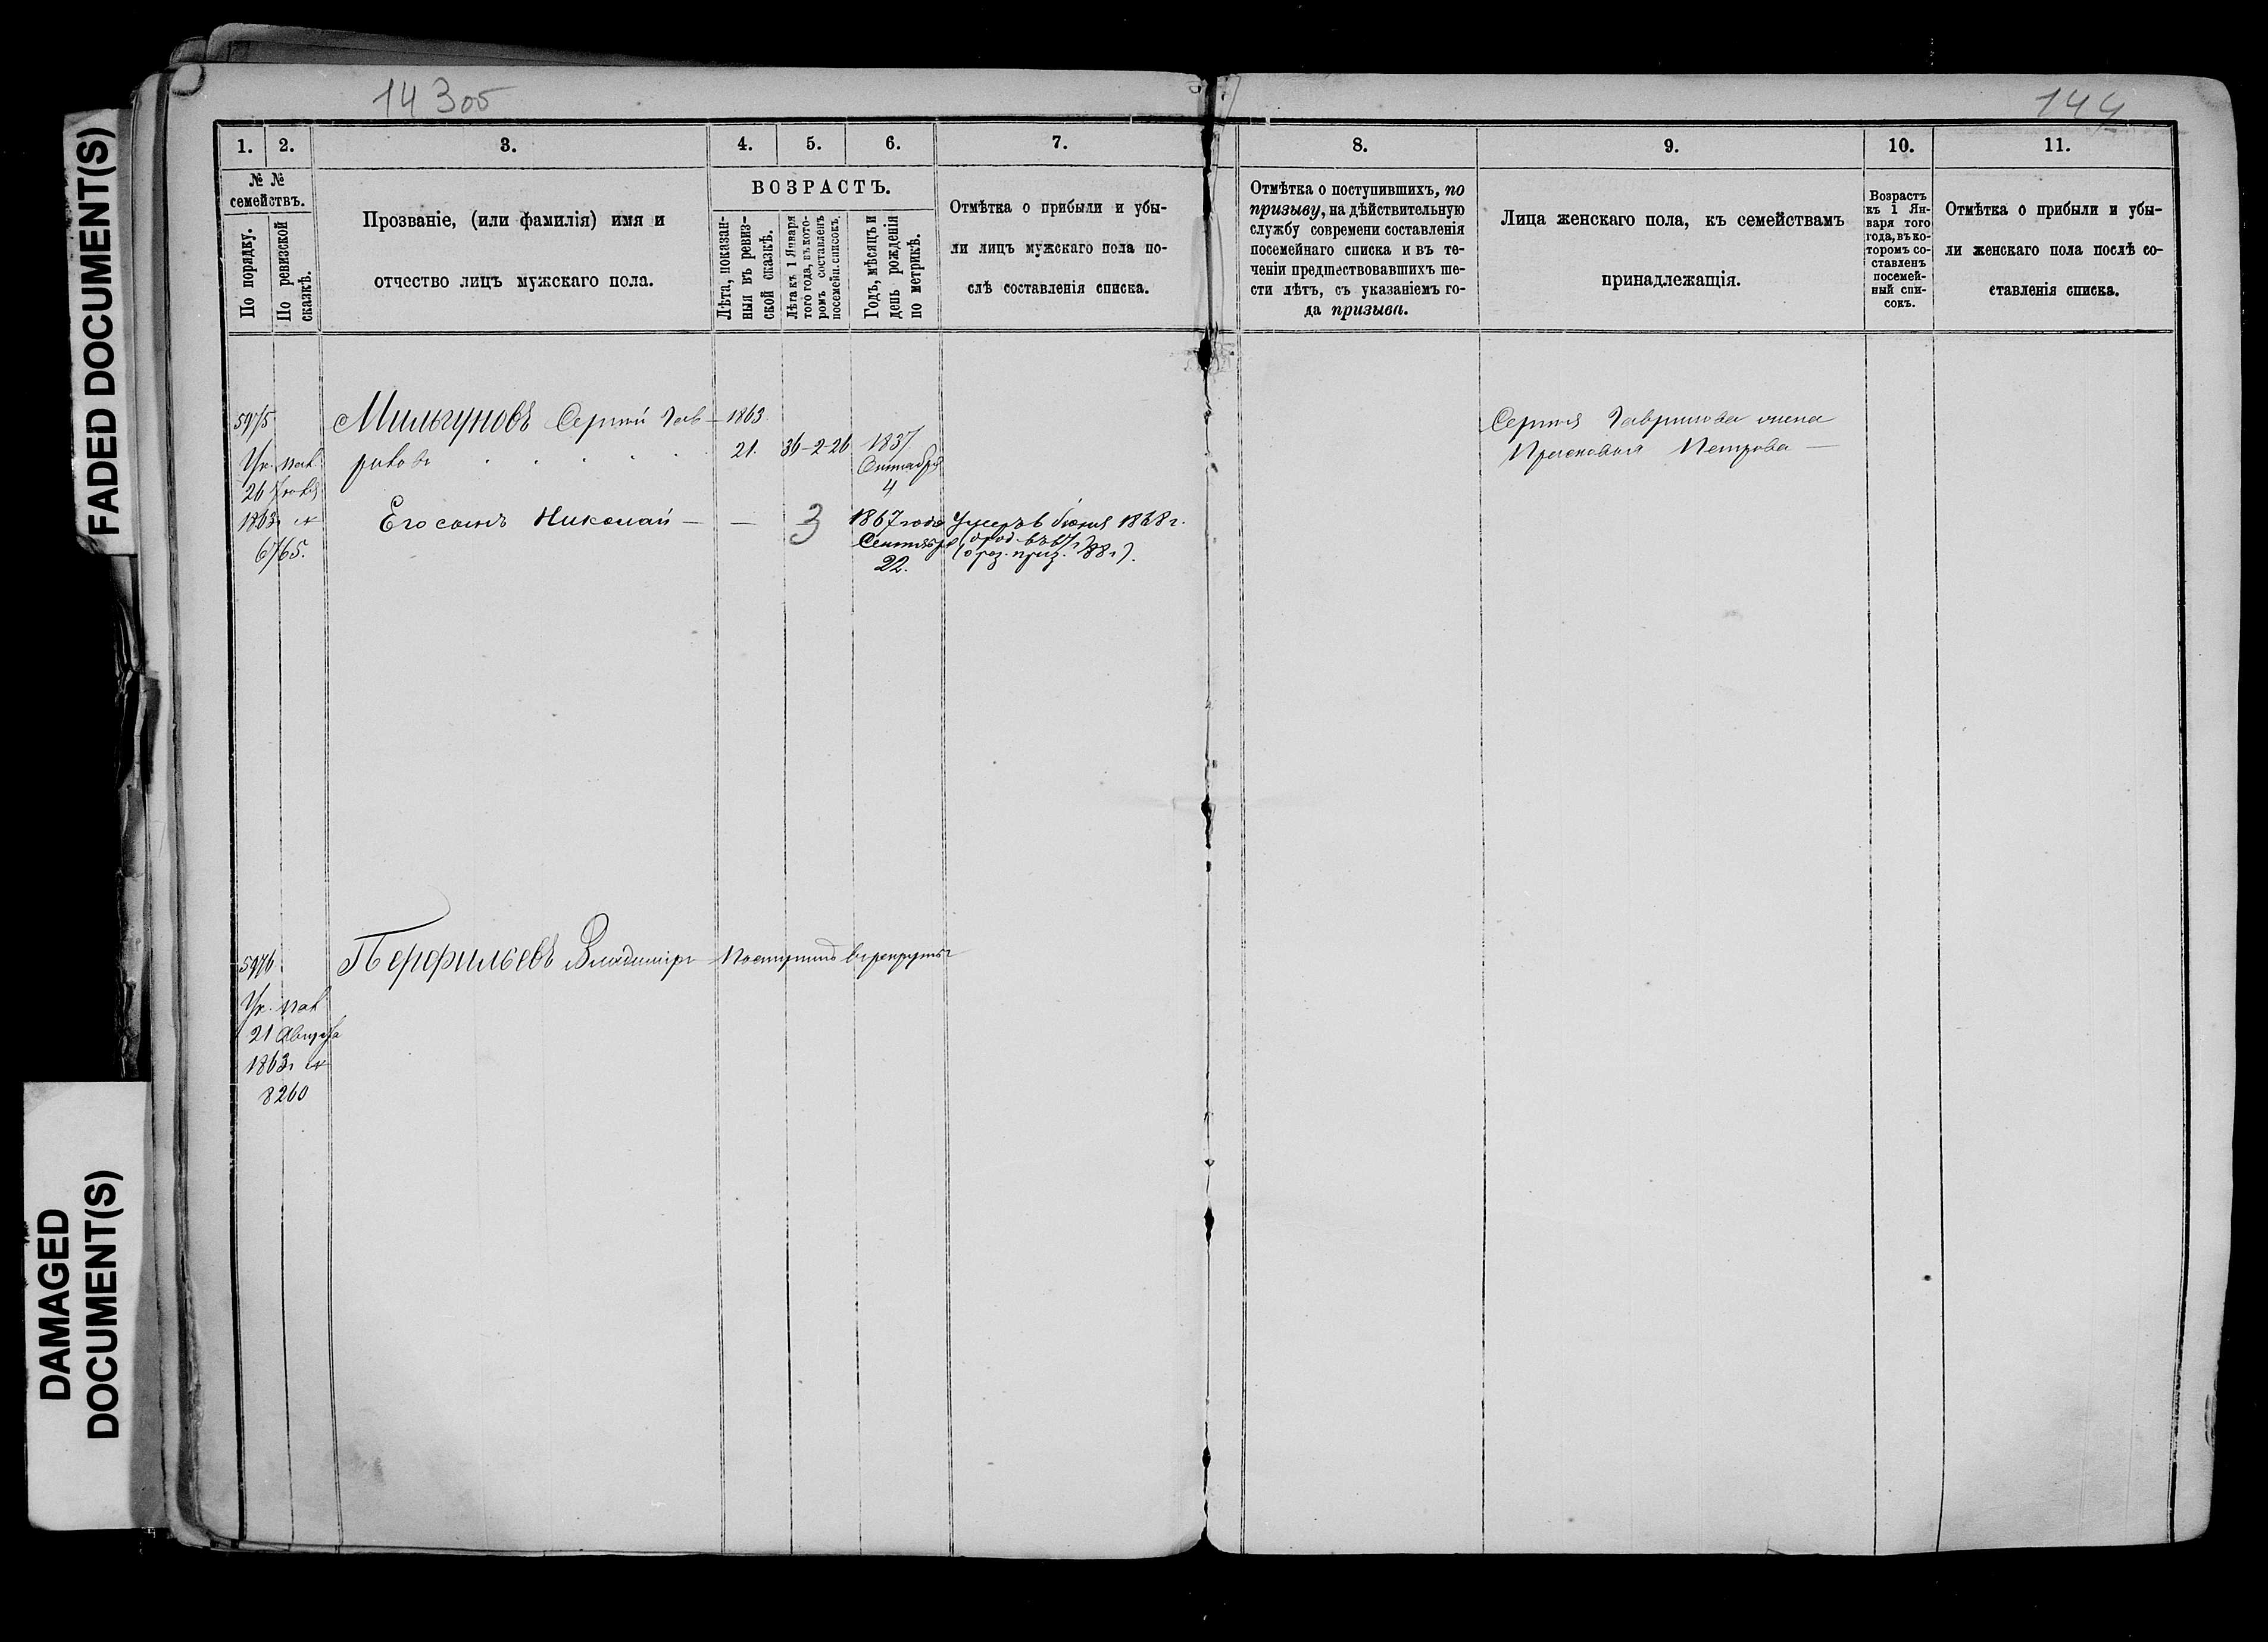 FADED DOCUMENT(S)
DAMAGED
DOCUMENT(S)
14 3об
144
1. 2. 3. 4. 5. 6. 7. 8. 9. 10. 11.
№ №
семействъ.
По порядку.
По ревизской
сказкѣ.
Прозваніе, (или фамилія) имя и
отчество лицъ мужскаго пола.
ВОЗРАСТЪ.
Лѣта, показан-
ныя въ ревиз-
ской сказкѣ.
Лѣта къ 1 Января
того года, въ кото-
ромъ составленъ
посемейн. списокъ.
Годъ, мѣсяцъ и
день рожденія
по метрикѣ.
Отмѣтка о прибыли и убы-
ли лицъ мужскаго пола по-
слѣ составленія списка.
Отмѣтка о поступившихъ, по
призыву, на дѣйствительную
службу современи составленія
посемейнаго списка и въ те-
ченіи предшествовавшихъ ше-
сти лѣтъ, съ указаніемъ го-
да призыва.
Лица женскаго пола, къ семействамъ
принадлежащія.
Возрастъ
къ 1 Ян-
варя того
года, въ ко-
торомъ со-
ставленъ
посемей-
ный спи-
сокъ.
Отмѣтка о прибыли и убы-
ли женскаго пола послѣ со-
ставленія списка.
5975 Мильгуновъ Сергѣй Гав- 1863. Сергѣя Гаврилова жена
Ук. Пал. риловъ 21. 36-2-26 1837 Прасковья Петрова —
26 Сентября
4
1863г № Его сынъ Николай — — 3 1867 года Умеръ 6 Іюня 1868г.
6765. Сентября
22.
5976 Перфильевъ Владиміръ — Поступилъ въ рекруты
Ук. Пал
21 Августа
1863г №
8260